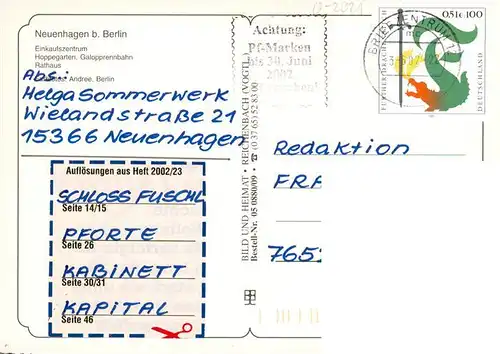 Neuenhagen b. Berlin
Einkaufszentrum
Hoppegarten. Galopprennbahn
Rathaus
Andree. Berlin
Abs.:
Helga Sommerwerk
Wielandstraße 21
15366 Neuenhagen
Auflösungen aus Heft 2002/23
SCHLOSS FUSCHL
Seite 14/15
PFORTE
Seite 26
KABINETT
Seite 30/31
KAPITAL
Seite 46
BILD UND HEIMAT · REICHENBACH (VOGTL) (0 37 65) 52 83 00
Bestell-Nr. 05 0880/09
12-2021
Achtung:
Pf-Marken
bis 30. Juni
2002
BRIEFZENTRUM
mc
0,51€ 100
FURTHER DRACHENSTICH
DEUTSCHLAND
Redaktion
FRA
765